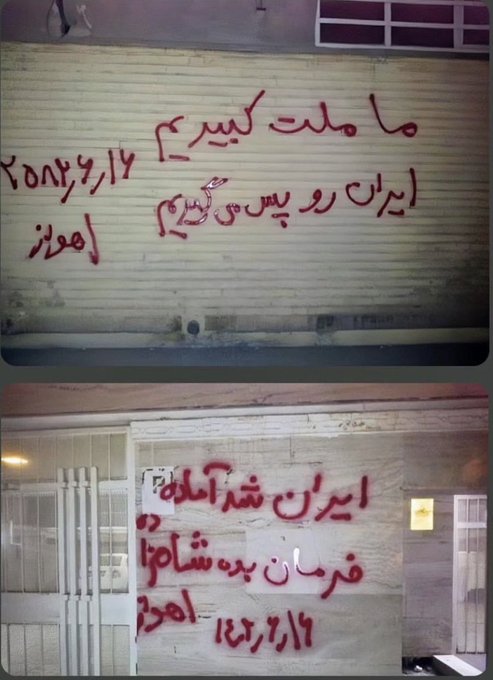 ما ملت کبیریم
ایران رو پس می‌گیریم
۲۵۸۲٫۶٫۱۶
اهواز
ایران شد آماده
فرمان بده شاهزاده
۱۴۰۲٫۶٫۱۶
اهواز